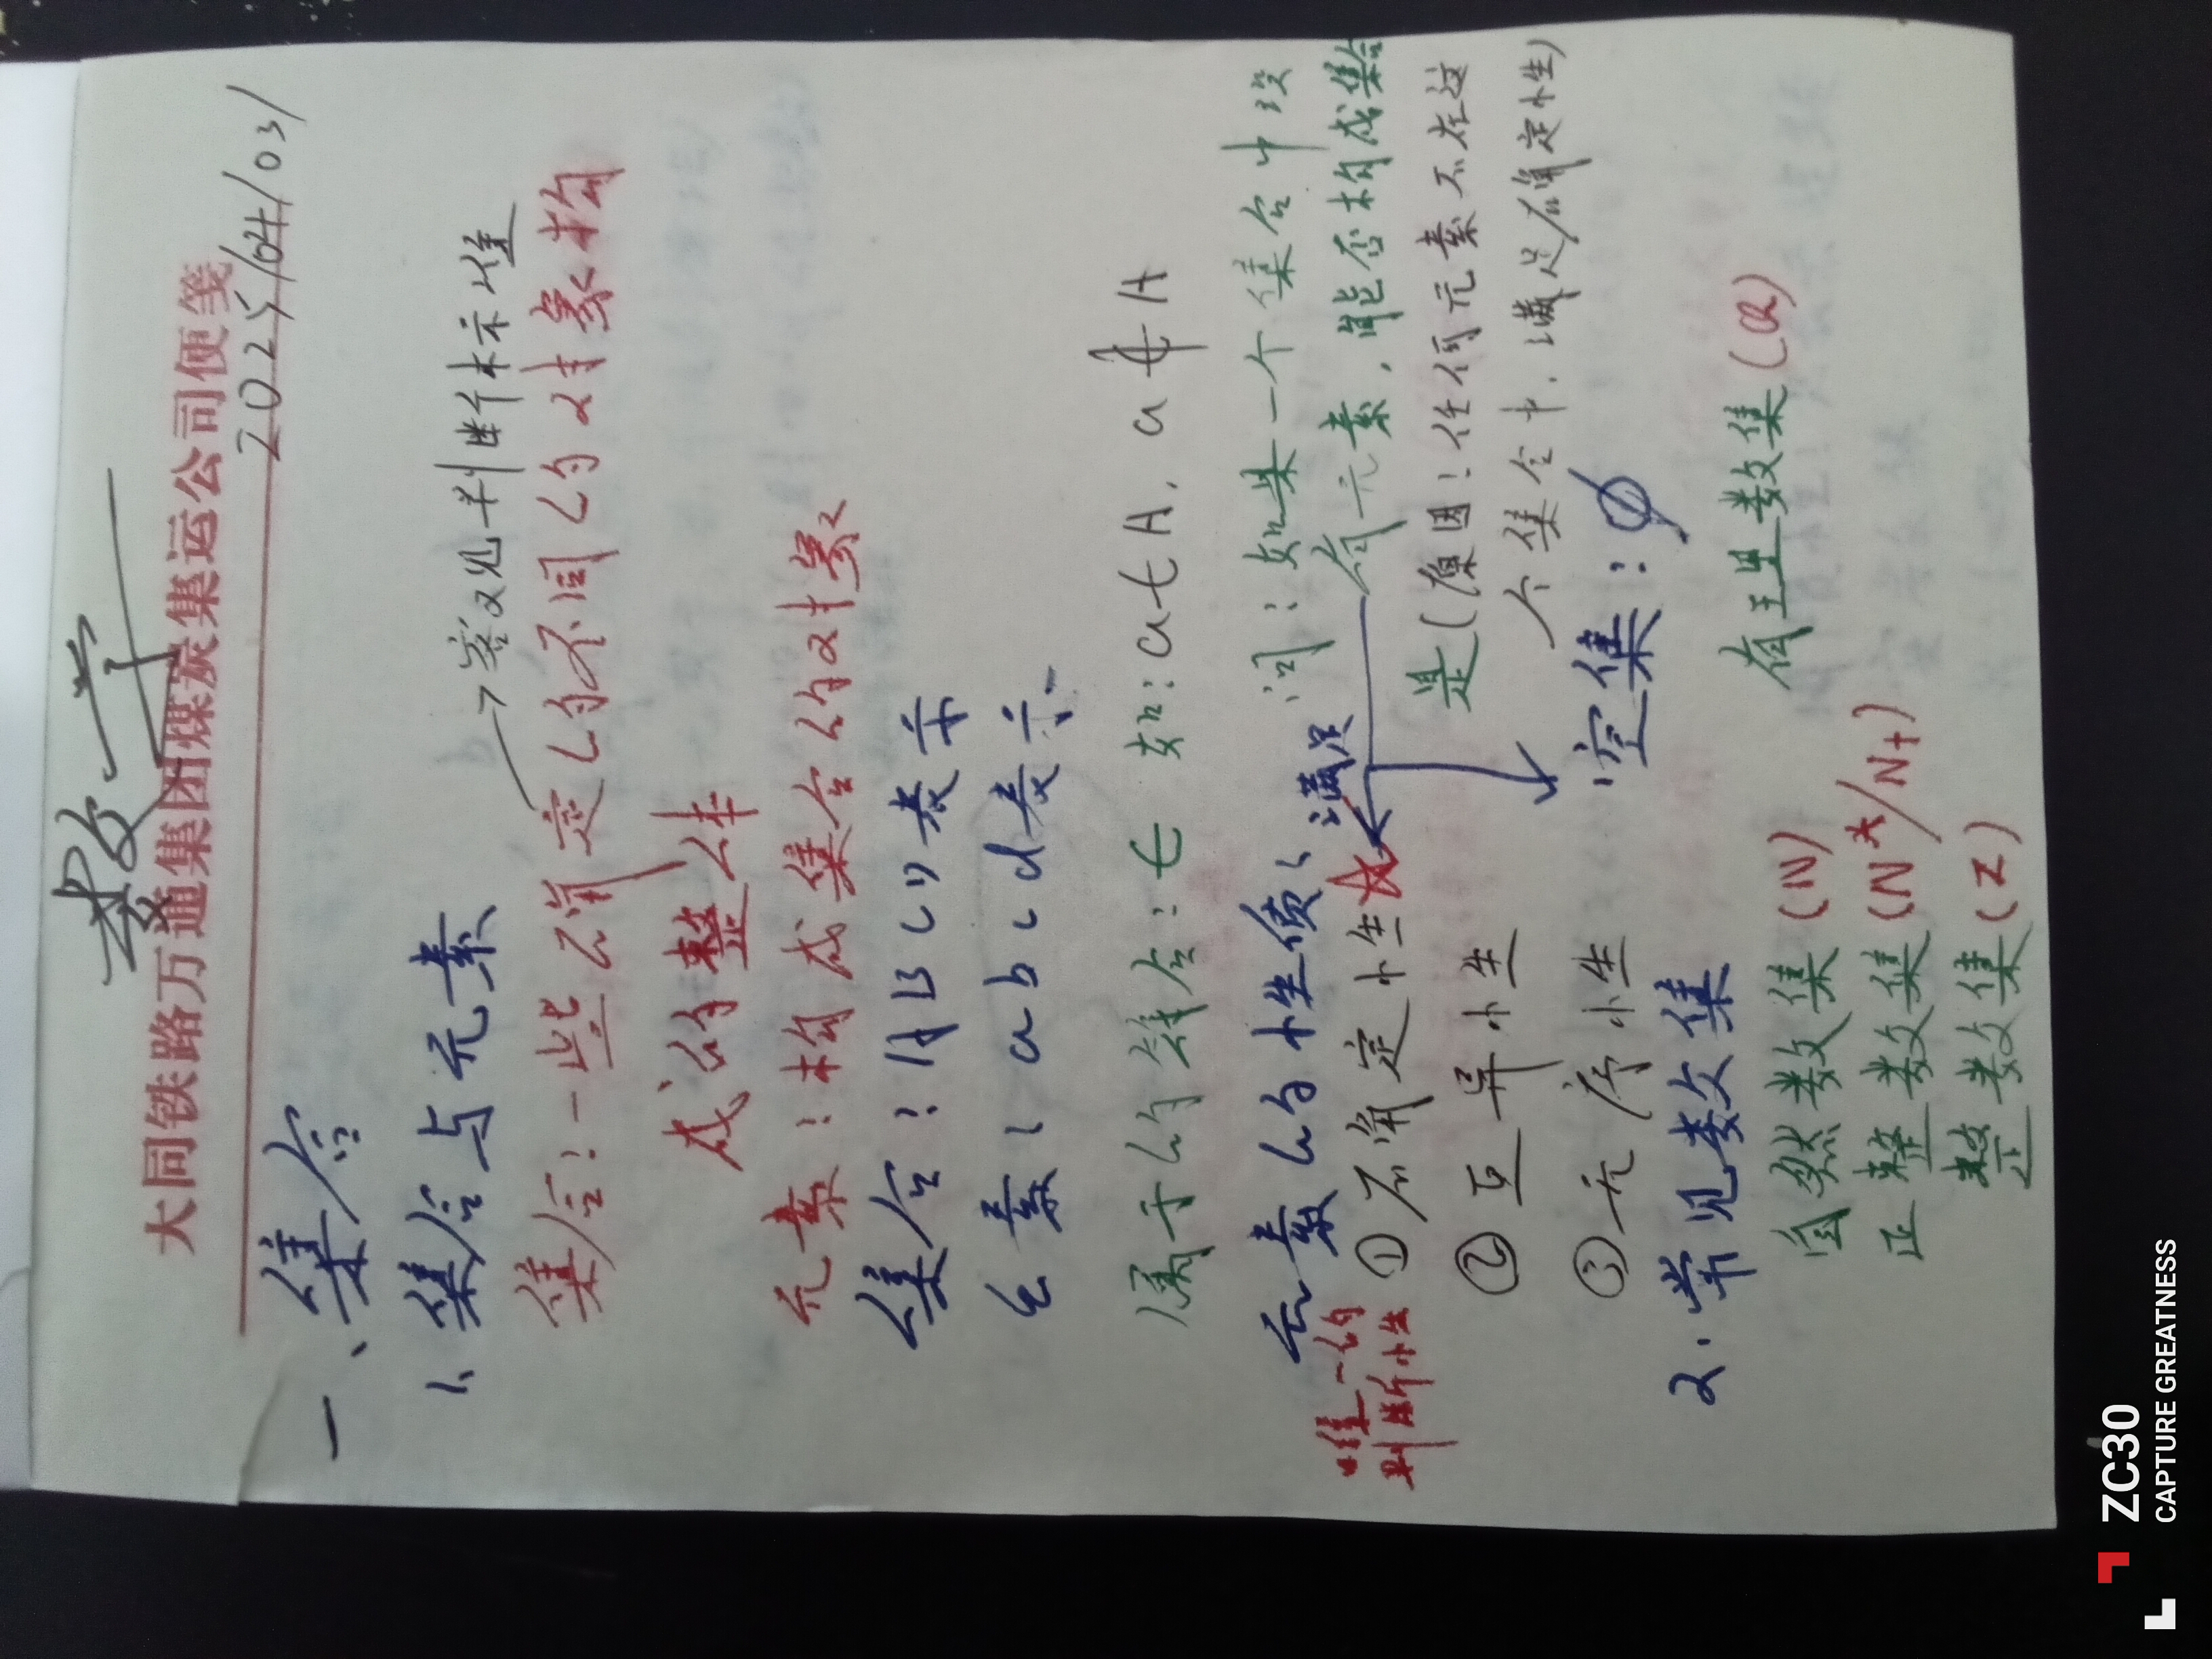 数学
大同铁路万通集团煤炭集运公司便笺
2025/04/03/
一、集合
1、集合与元素
→客观判断标准
集合：一些确定的不同的对象构
成的整体
元素：构成集合的对象
集合：A B C D 表示
元素：a b c d 表示
属于的符合：∈ 如：a∈A，a∉A
元素的性质：满足
问：如果一个集合中没
有元素，能否构成集合
唯一的
判断性
①确定性☆
是（原因：任何元素不在这
②互异性
个集合中，满足确定性）
③无序性
空集：∅
2.常见数集
自然数集（N） 有理数集（Q）
正整数集（N*/N+）
整数集（Z）
ZC30
CAPTURE GREATNESS